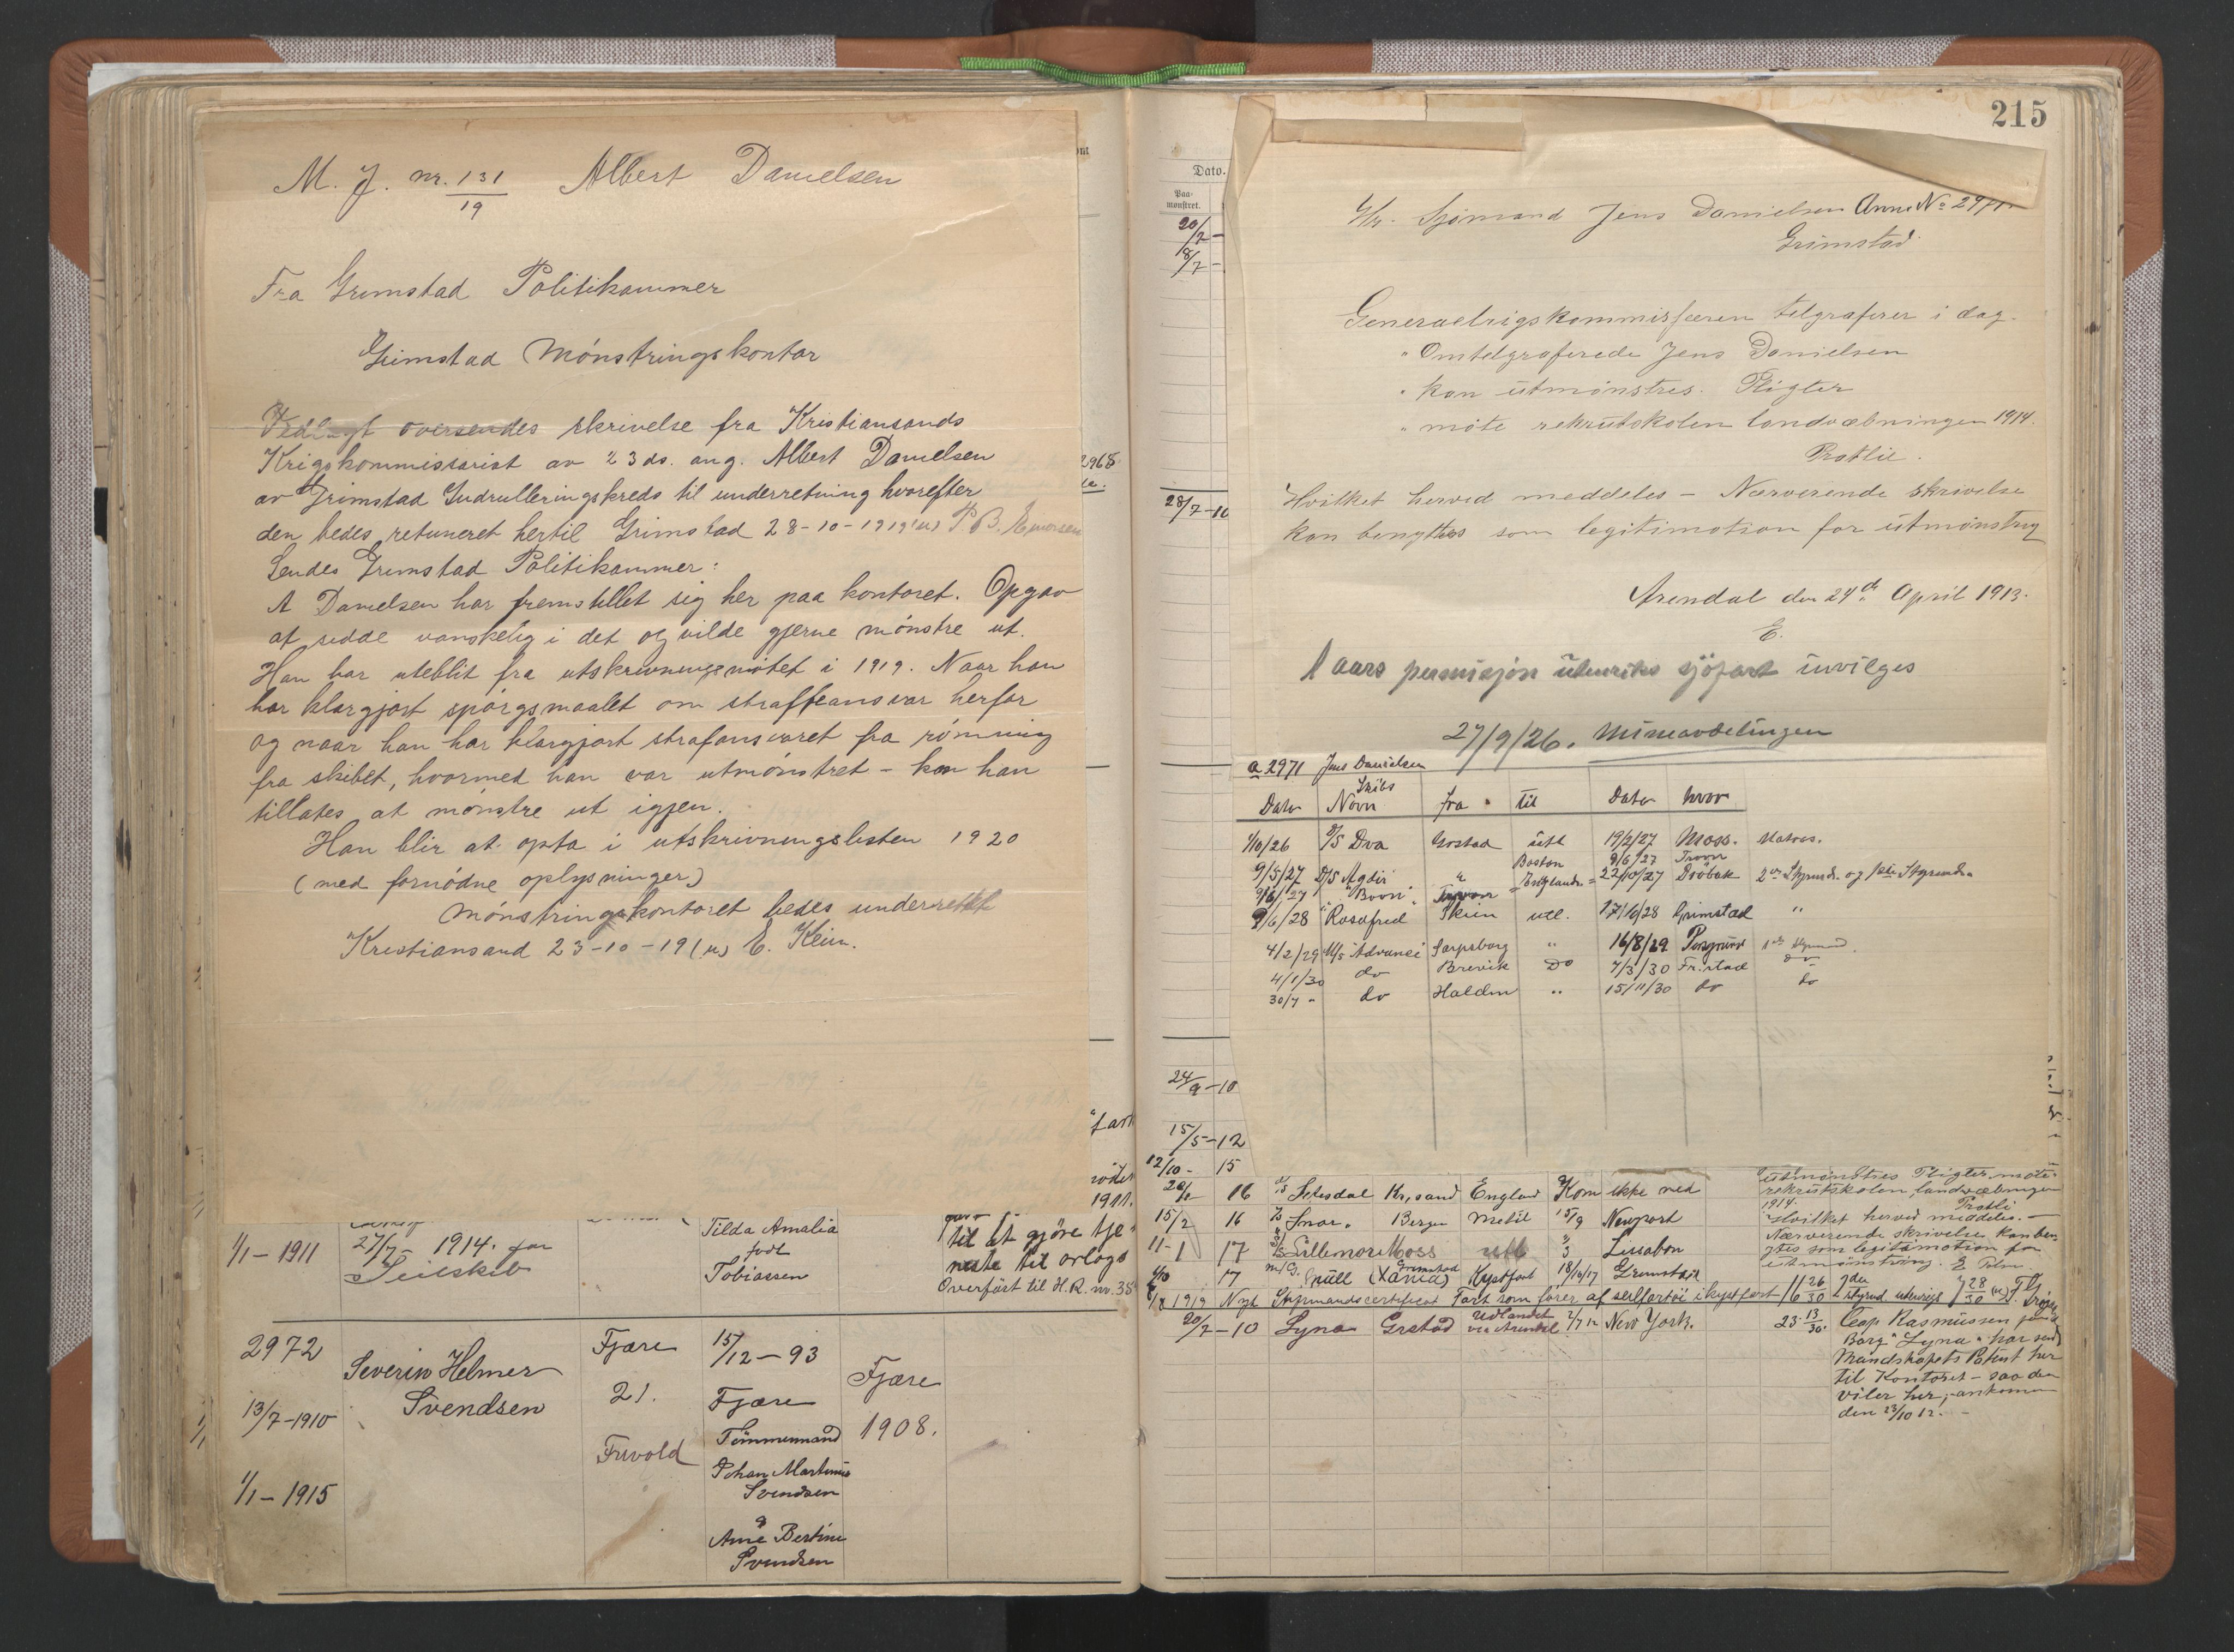 M. J. nr. 131/19 Albert Danielsen
Fra Grimstad Politikammer
Grimstad Mönstringskontor
Vedlagt oversendes skrivelse fra Kristiansands
Krigskommissariat av 23 ds. ang. Albert Danielsen
av Grimstad Indrulleringskreds til underretning hvorefter
den bedes retuneret hertil Grimstad 28-10-1919 (u)
Sendes Grimstad Politikammer:
A Danielsen har fremstillet sig her paa kontoret. Opgav
at sidde vanskelig i det og vilde gjerne mönstre ut.
Han har uteblit fra utskrivningsmötet i 1919. Naar han
har klargjort spörgsmaalet om straffeansvar herfor
og naar han har klargjort strafansvaret fra römning
fra skibet, hvormed han var utmönstret - kan han
tillates at mönstre ut igjen.
Han blir at opta i utskrivningslisten 1920
(med fornödne oplysninger)
Mönstringskontoret bedes underrettet
Kristiansand 23-10-19 (u) E. Klem.
2968
1911.
1/1 - 1911
27/7 - 1914. for
Seilskib
Tilda Amalia
födt
Tobiassen
til at gjöre tje
neste til orlogs
Overfört til H.R. nr. 38
2972
13/7-1910
1/1 - 1915
Severin Helmer
Svendsen
Fjære
21.
Frivold
15/12 - 93
Fjære
Tömmermand
Johan Martinius
Svendsen
&
Ane Bertine
Svendsen
Fjære
1908.
215
Dato.
Paa-
monstret.
20/2 -
18/7 -
28/7-10
24/9-10
15/5-12
12/10 - 15
Hr. Sjömand Jens Danielsen Ann. No 2971
Grimstad
Generalkrigskommissæren telgraferer i dag.
" Omtelgraferede Jens Danielsen
" kan utmönstres. Pligter
" möte rekrutskolen landvæbningen 1914.
Pratlie.
Hvilket herved meddeles - Nærværende skrivelse
kan benyttes som legitimation for utmönstring
Arendal den 24de April 1913.
E.
1 aars permisjon utenriks sjöfart invilges
27/9/26. Mineavdelingen
a 2971 Jens Danielsen
Dato Skibs Navn fra til Dato hvor
1/10/26 D/S Dva Grstad utl 19/2/27 Moss. Matros.
9/5/27 D/S Agdir " Boston 9/6/27
9/6/27 " Bvori " Englands 22/10/27 Dröbak 2en Styrmd. og 1ste Styrmd.
9/6/28 Rosafred Skien utl. 17/6/28 Grimstad "
4/2/29 M/S Advance Sarpsborg " 16/8/29 Porsgrund
4/1/30 do Brevik Do 7/3/30 Fr.stad do
30/7 " do Halden " 15/11/30 do do
16 D/S Setesdal Kr.sand England Kom ikke med
15/2 16 Snar. Bergen Methil 15/9 Newport
11-1 17 Lillemor Moss utl Lissabon
17 Spull (Xania) Grimstad Kystfart 18/10/17 Grimstad
1919 Nyt Styrmandscertificat Fart som förer af seilfartöi i kystfart
20/7 - 10 Lyna Grstad Udlandet via Arendal 2/7 12 New York. 23 13/30.
utmönstres Pligter möte
rekrutskolen landvæbningen
1914 Pratli
Hvilket herved meddeles. -
Nærværende skrivelse kan ben-
ytes som legitimation for
utmönstring.
Cap Rasmussen
Bârg "Lyna" har sendt
Mandskapets Patent her
til Kontoret - saa den
viler her, ankommen
den 23/10 12. -